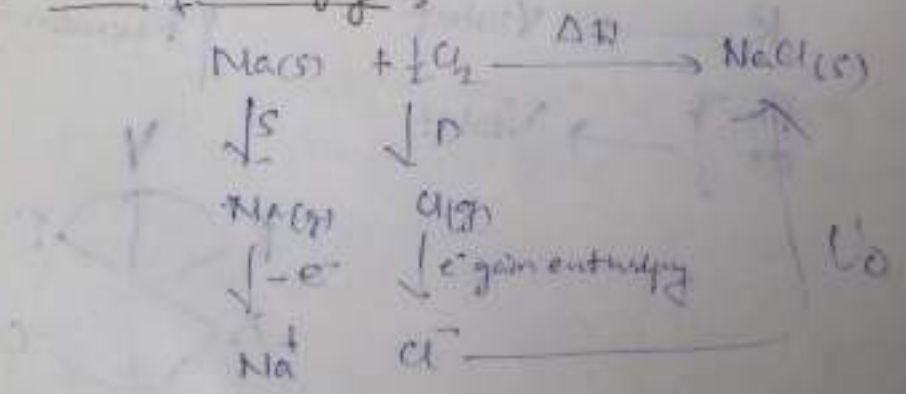 Na(s) + ½Cl₂ ΔH NaCl(s)
S D
Na(g) Cl(g)
-e⁻ e⁻ gain enthalpy U₀
Na⁺ Cl⁻